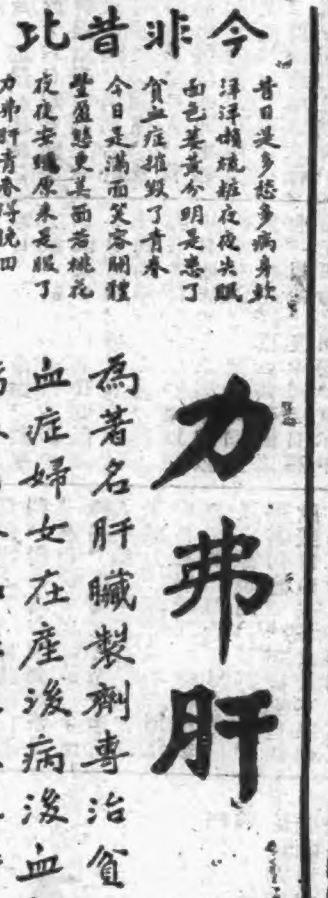 今非昔比
昔日是多愁多病身軟
洋洋懶梳粧夜夜失眠
面色萎黃分明是患了
貧血症摧毀了青春
今日是滿面笑容開體
豐盈態更美面若桃花
夜夜安眠原來是服了
力弗肝青春得挽回
力弗肝
為著名肝臟製劑專治貧
血症婦女在產後病後血